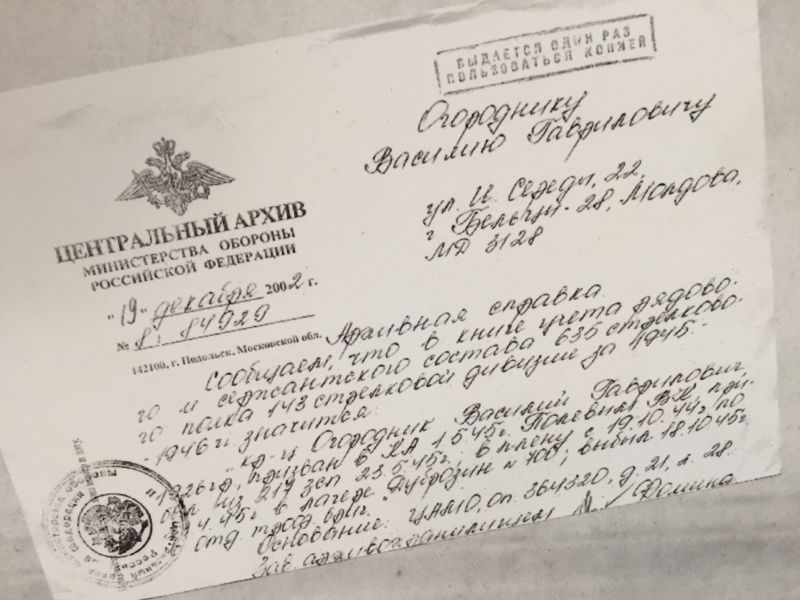 ВЫДАЕТСЯ ОДИН РАЗ
ПОЛЬЗОВАТЬСЯ КОПИЕЙ
Огороднику
Василию Гавриловичу
ул. И. 22,
г. Бельцы-28, Молдова,
МД 3128
ЦЕНТРАЛЬНЫЙ АРХИВ
МИНИСТЕРСТВА ОБОРОНЫ
РОССИЙСКОЙ ФЕДЕРАЦИИ
"19" декабря 2002 г.
№ 8: 84929
142100, г. Подольск, Московской обл.
Архивная справка.
Сообщаем, что в книге учета рядово-
го и сержантского состава 635 стрелково-
го полка 143 стрелковой дивизии за 1945-
-1946 гг. значится:
"кр-ц Огородник Василий Гаврилович,
1926 г.р., призван в КА 1.5.45г. Полевым ВК, при-
был из 219 зсп 23.5.45г., в плену с 19.10.44г. по
4.45г. в лагере № 700, выбыл 18.10.45г.
Основание: ЦАМО, оп. 364320, д. 21, л. 28.
Зав. архивохранилищем Фомина